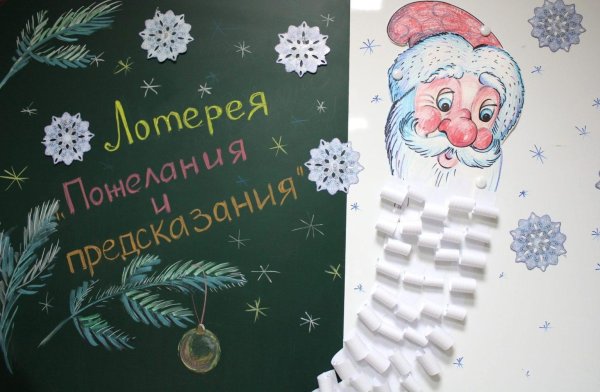 Лотерея
"Пожелания
и
предсказания"